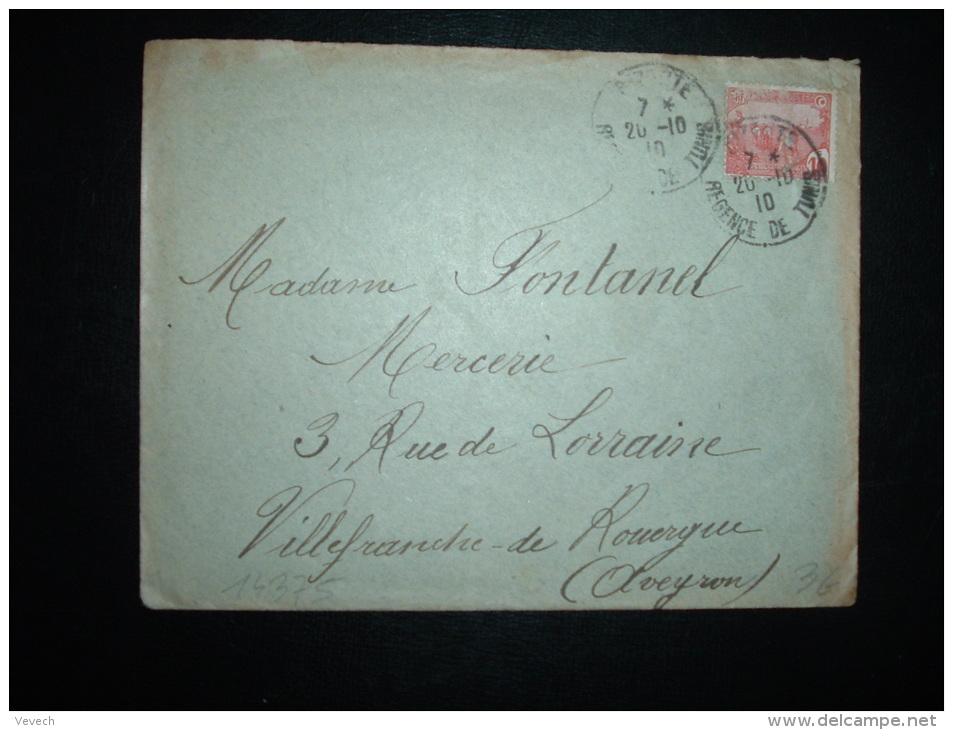 7 *
20 -10
10
DE TUNIS
7 *
20 -10
10
REGENCE DE TUNIS
Madame Fontanel
Mercerie
3, Rue de Lorraine
Villefranche-de Rouergue
(Aveyron)
14375
36
Vevech
www.delcampe.net